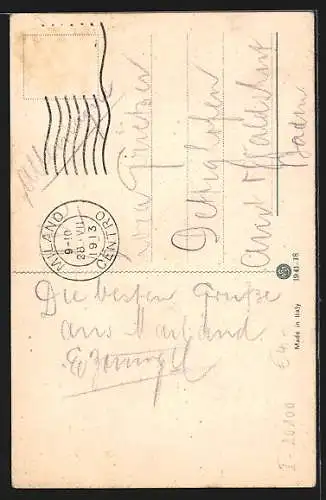 MILANO
CENTRO
9-10
28 VII
1913
Dettighofen
Amt Waldshut
Baden
Die besten Grüße
aus Mailand.
1941-18
Made in Italy
€4,-
I-20100